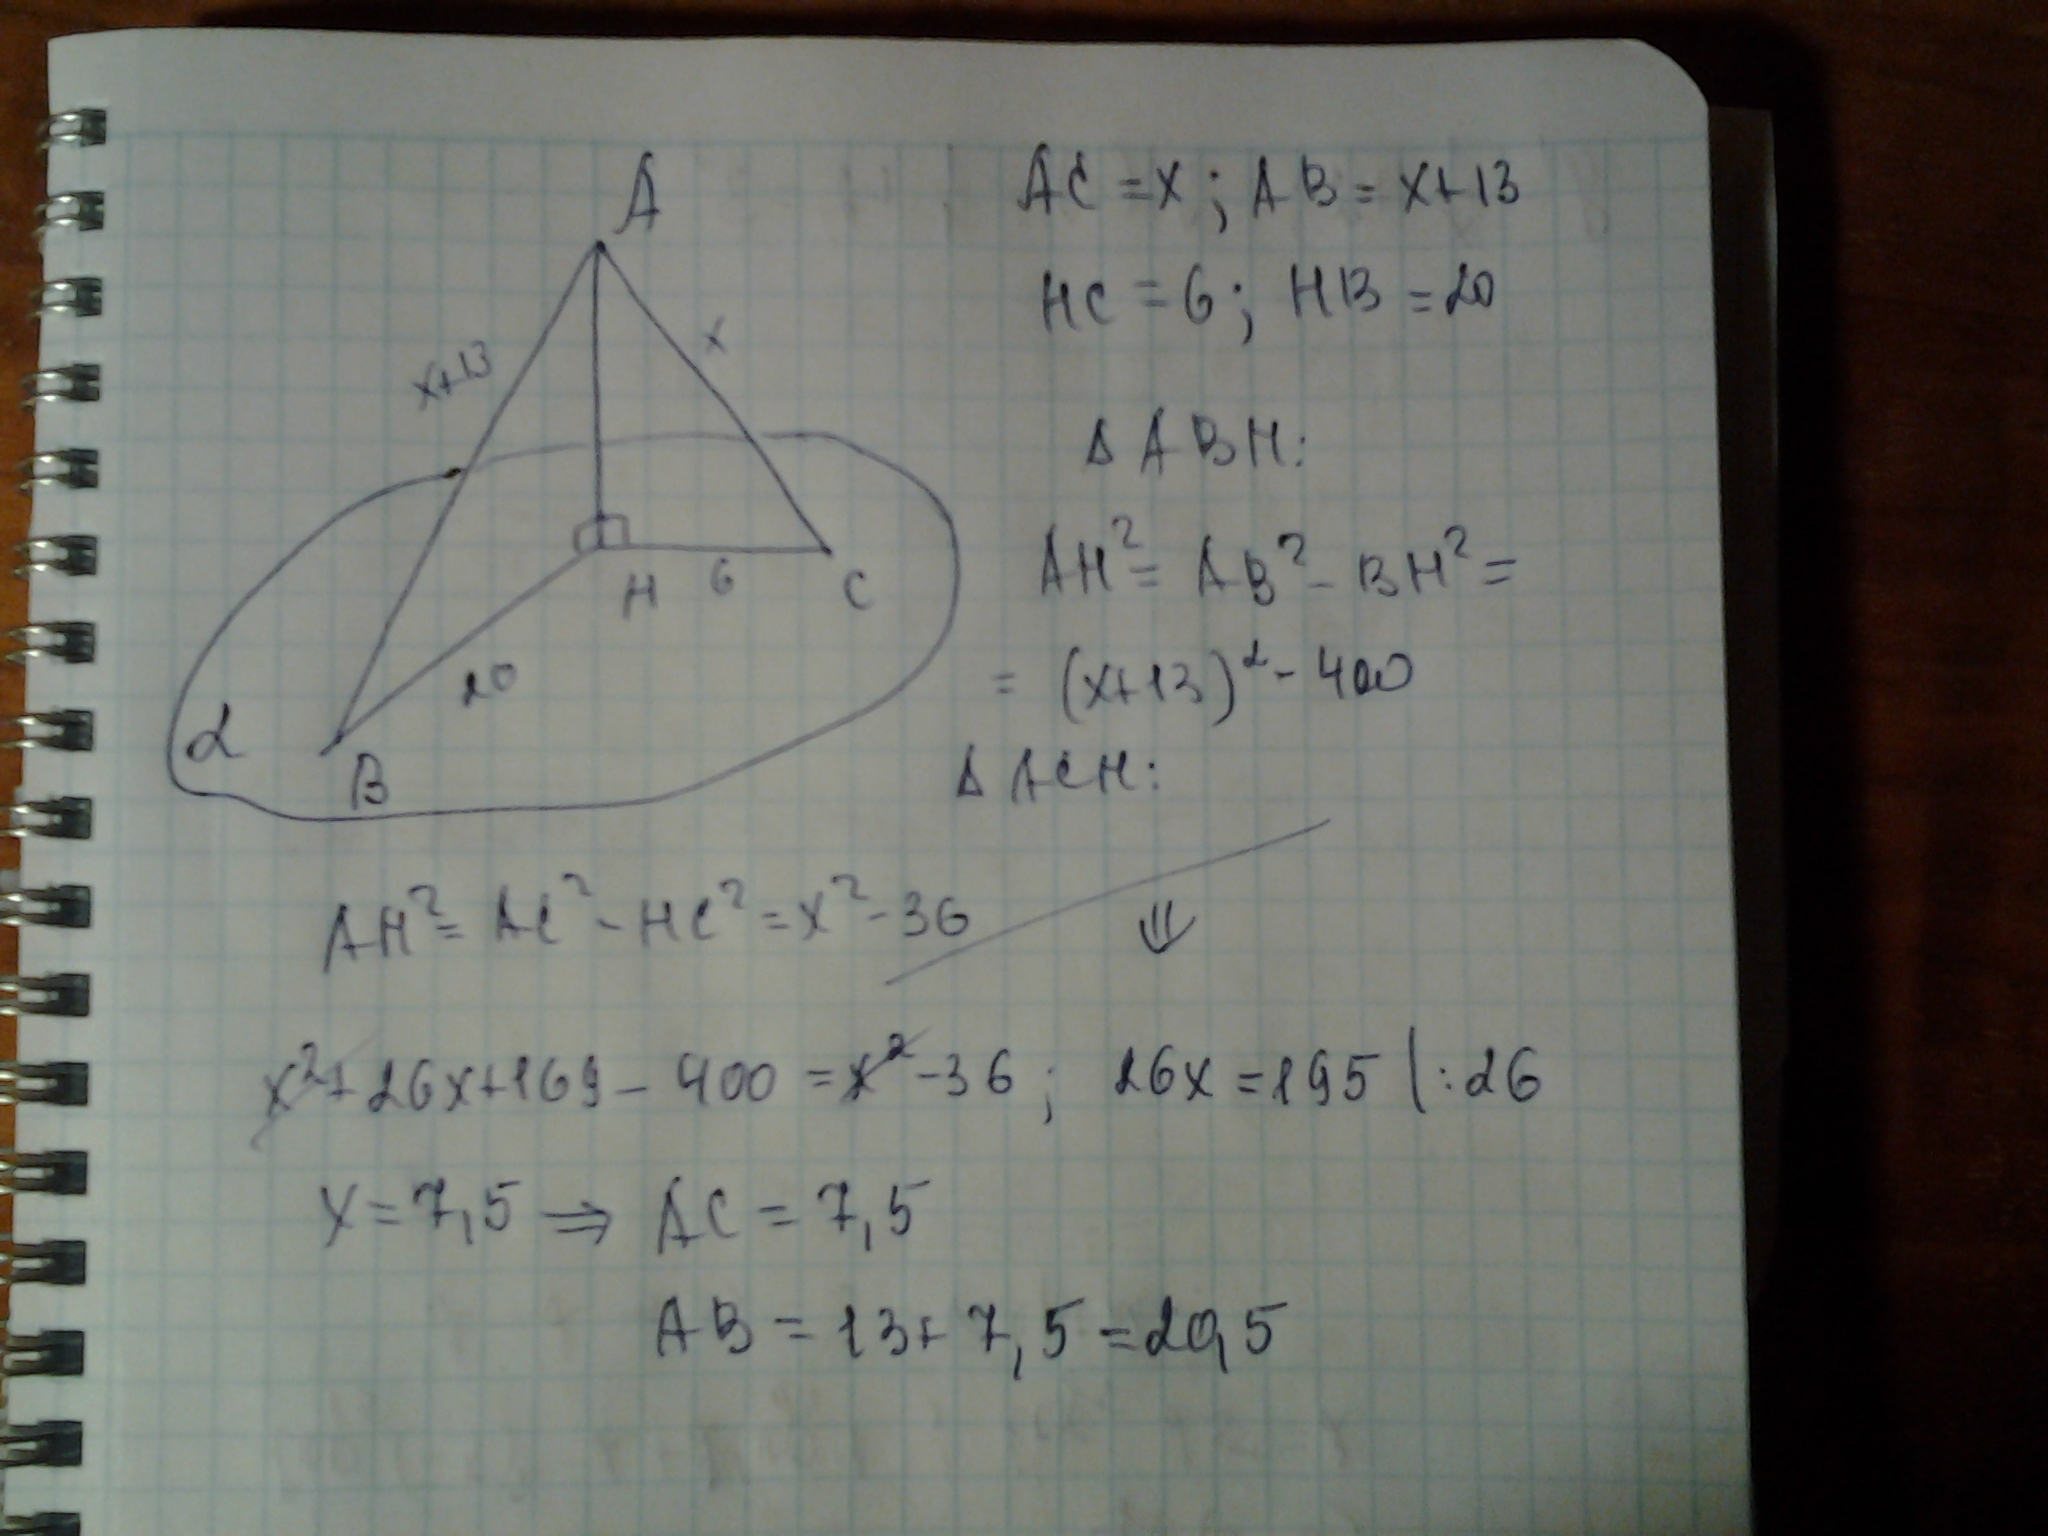 A
x+13
x
H
6
C
20
α
B
AC = x; AB = x+13
HC = 6; HB = 20
Δ ABH:
AH² = AB² - BH² =
= (x+13)² - 400
Δ ACH:
AH² = AC² - HC² = x² - 36
⇓
x² + 26x + 169 - 400 = x² - 36; 26x = 195 |:26
x = 7,5 ⇒ AC = 7,5
AB = 13 + 7,5 = 20,5